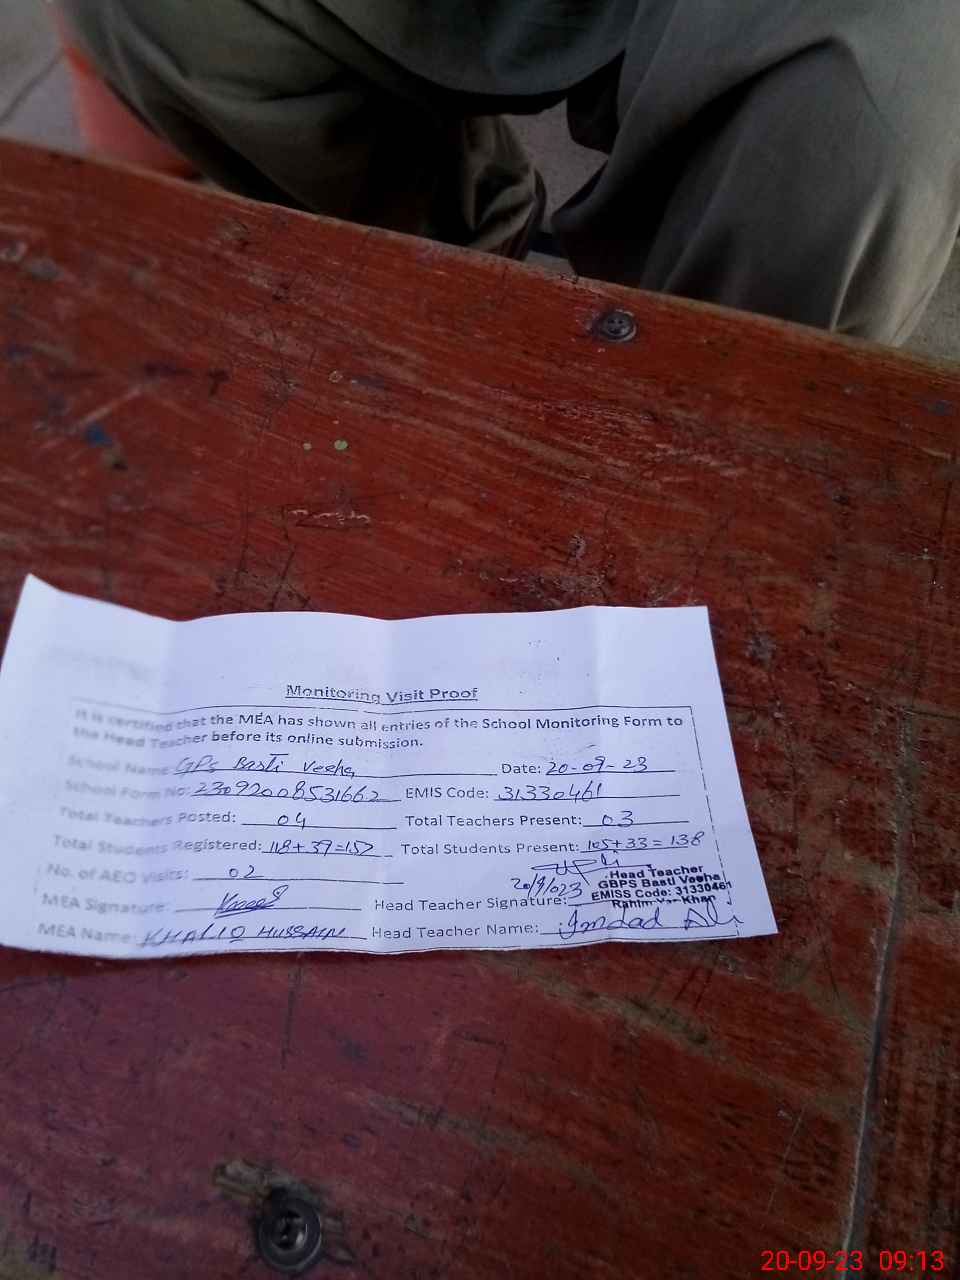 Monitoring Visit Proof
It is certified that the MEA has shown all entries of the School Monitoring Form to
the Head Teacher before its online submission.
School Name: GPS Basti Veeha Date: 20-09-23
School Form No: 23092008531662 EMIS Code: 31330461
Total Teachers Posted: 04 Total Teachers Present: 03
Total Students Registered: 118+39=157 Total Students Present: 105+33=138
No. of AEO Visits: 02
20/9/023
Head Teacher
GBPS Basti Veeha
EMISS Code: 31330461
Rahim Yar Khan
MEA Signature: Head Teacher Signature:
MEA Name: KHALIQ HUSSAIN Head Teacher Name: Imdad Ali
20-09-23 09:13